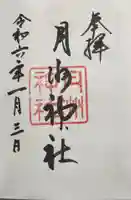 奉拝
月洲神社
令和六年一月三日